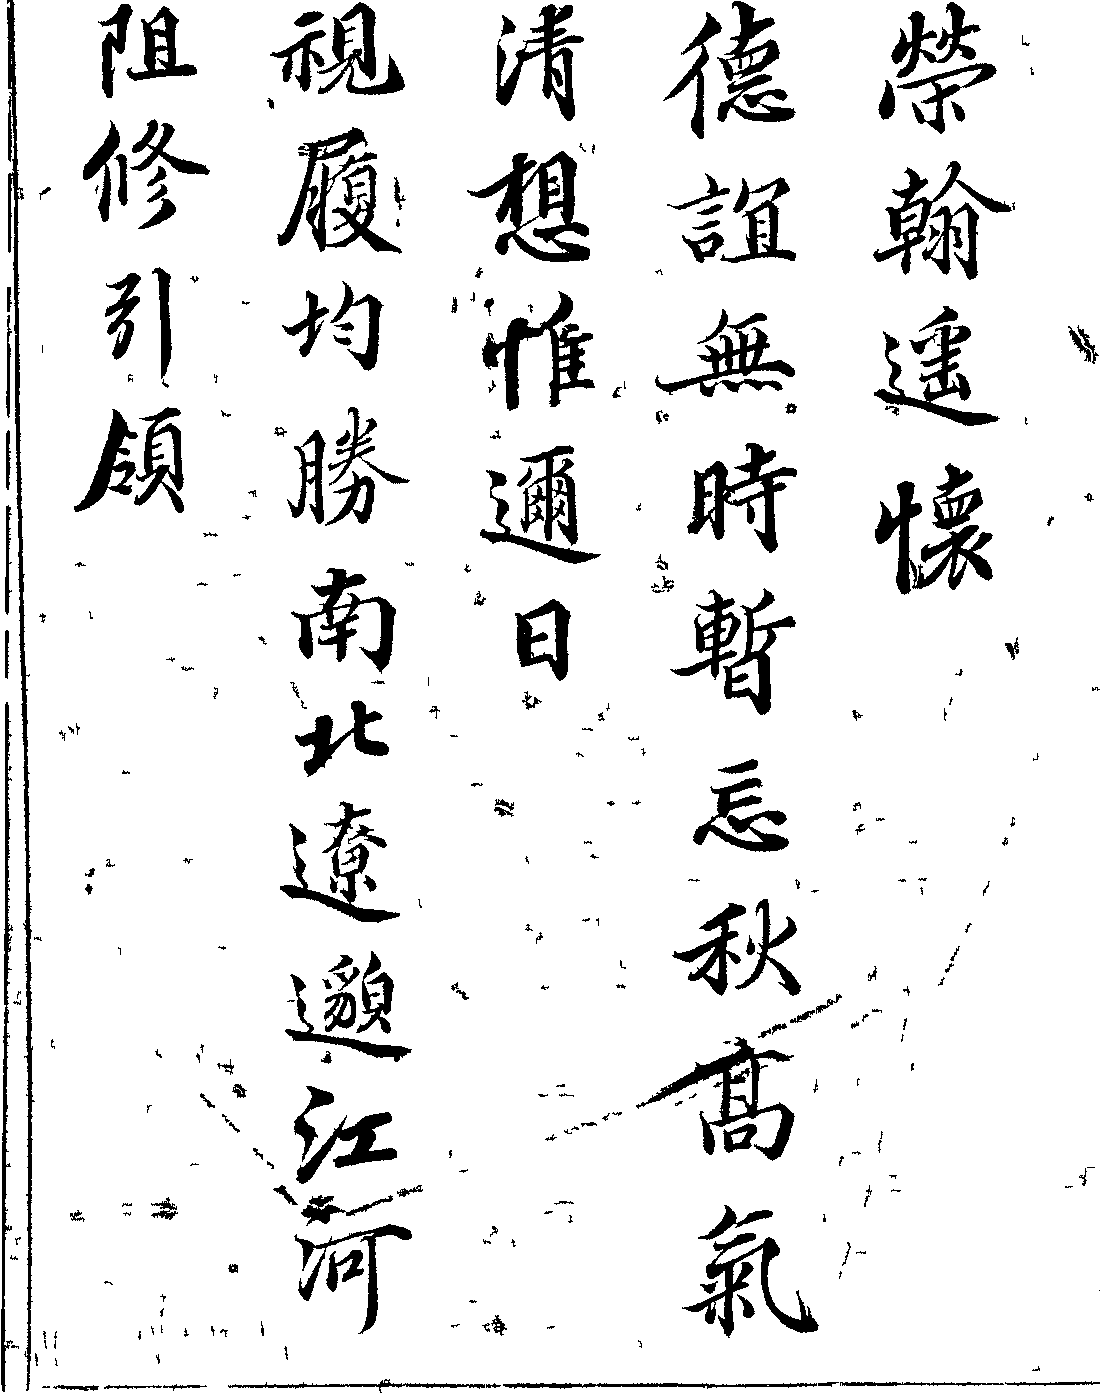 榮翰遥懷
德誼無時暫忘秋高氣
清想惟邇日
視履均勝南北遼邈江河
阻修引領